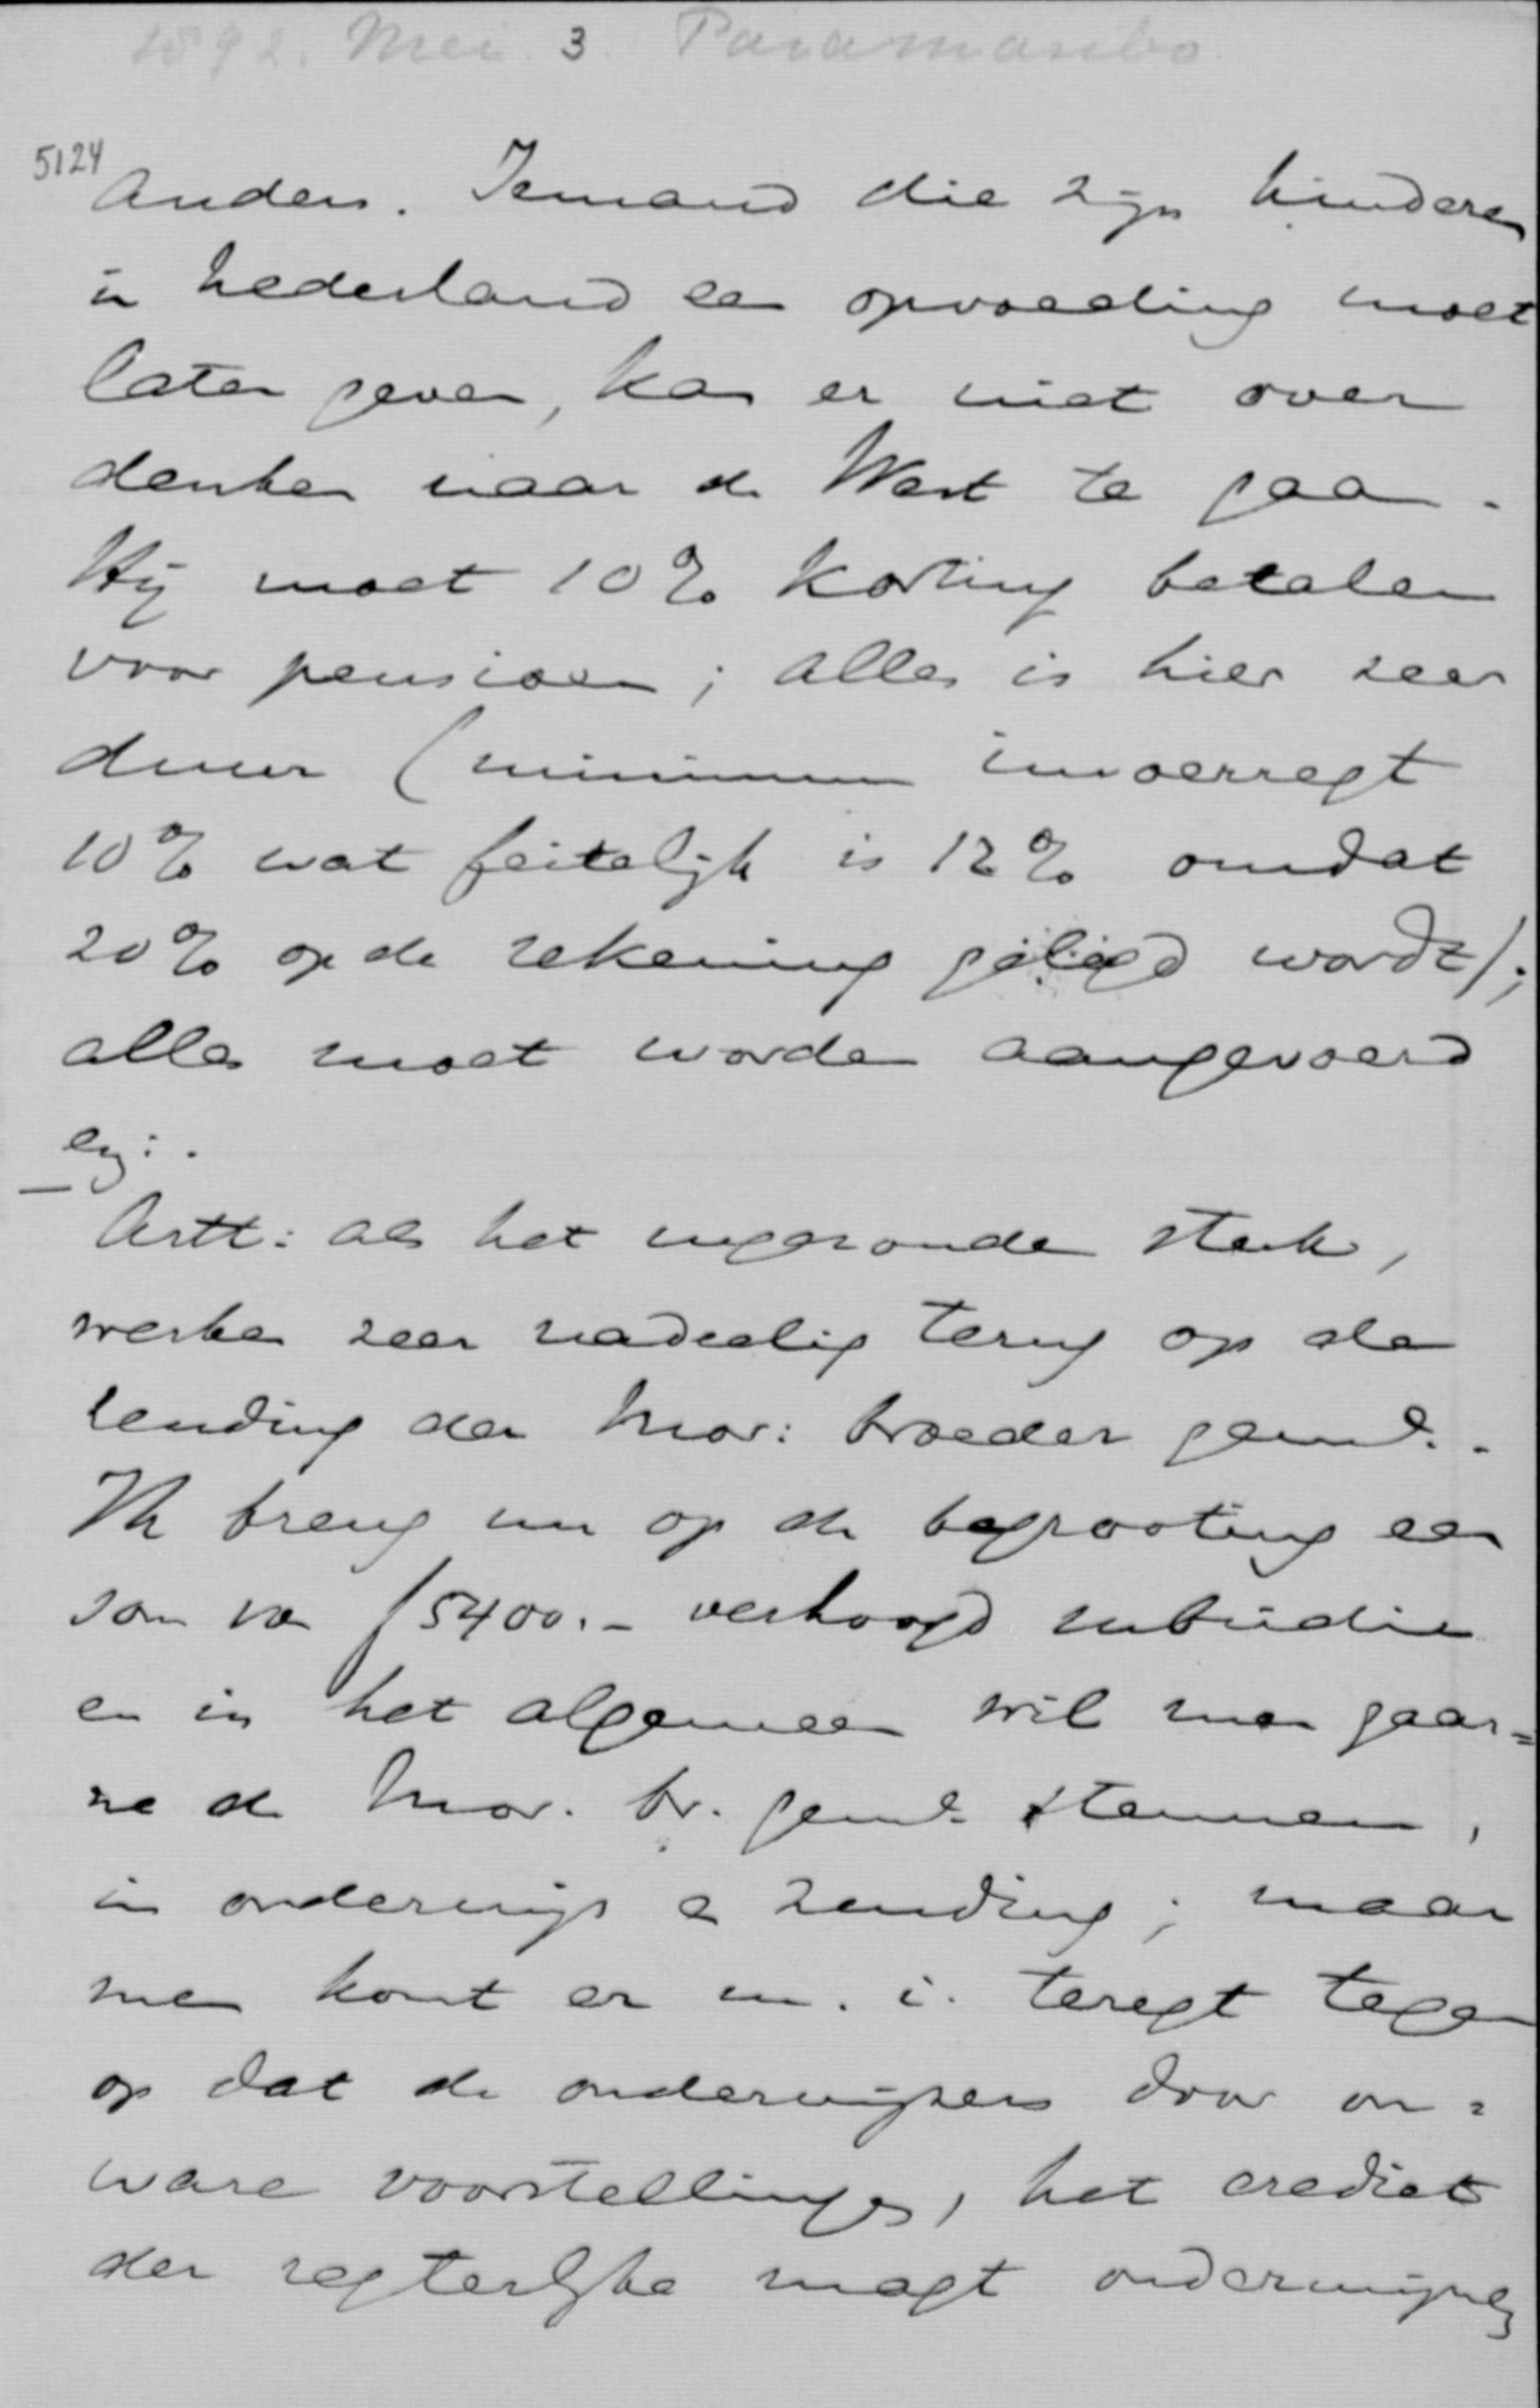 1892. Mei 3. Paramaribo.
5124
anders. Iemand die zijn kinderen
in Nederland een opvoeding moet
laten geven, kan er niet over
denken naar de West te gaan.
Hij moet 10% korting betalen
voor pensioen; alles is hier zeer
duur (minimum invoerregt
10% wat feitelijk is 12% omdat
20% op de rekening gelegd wordt);
alles moet worden aangevoerd
enz:.
Artt: als het ingezonden stuk,
werken zeer nadeelig terug op de
zending der Mor: broeder gemte.
Ik breng nu op de begrooting een
som van f5400.- verhoogd subsidie
en in het algemeen wil men gaar=
ne de Mor. br. gemte steunen,
in onderwijs en zending; maar
men komt er m. i. teregt tegen
op dat de onderwijzers door on=
ware voorstellingen, het crediet
der regterlijke magt ondermijnen